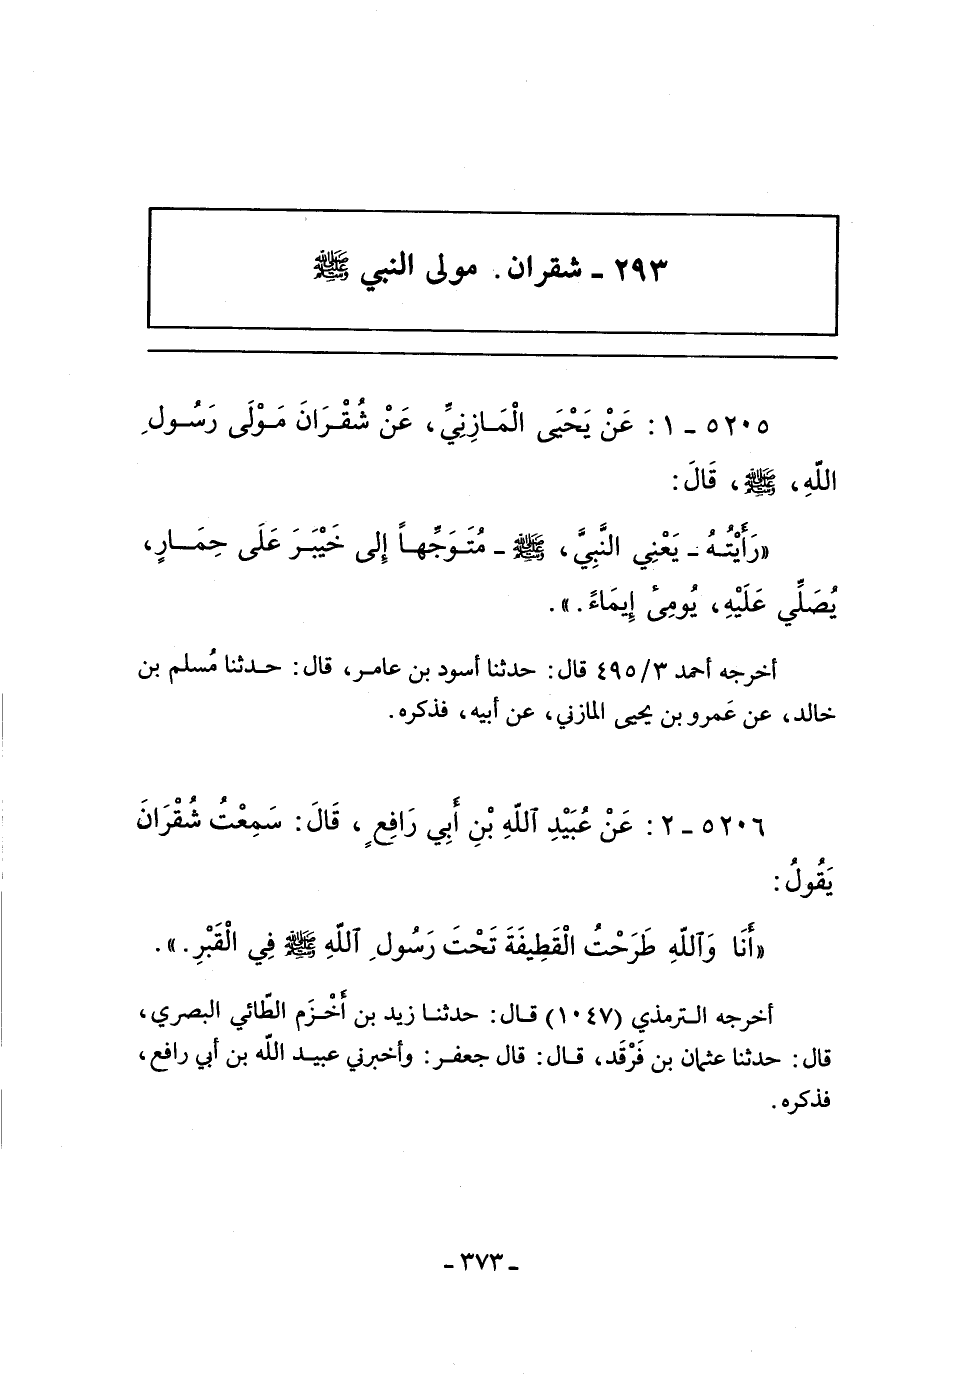 ٢٩٣ ـ شقران. مولى النبي ﷺ
٥٢٠٥ ـ ١: عَنْ يَحْيَى الْمَـازِنِيِّ، عَنْ شُقْـرَانَ مَـوْلَى رَسُـولِ
اللّهِ، ﷺ، قَالَ:
«رَأَيْتُـهُ ـ يَعْنِي النَّبِيَّ، ﷺ ـ مُتَـوَجِّهـاً إِلى خَيْبَـرَ عَلَى حِمَـارٍ،
يُصَلِّي عَلَيْهِ، يُومِئُ إِيمَاءً.».
أخرجه أحمد ٣/ ٤٩٥ قال: حدثنا أسود بن عامـر، قال: حـدثنا مُسلم بن
خالد، عن عَمرو بن يحيى المازني، عن أبيه، فذكره.
٥٢٠٦ ـ ٢: عَنْ عُبَيْدِ ٱللّهِ بْنِ أَبِي رَافِعٍ، قَالَ: سَمِعْتُ شُقْرَانَ
يَقُولُ:
«أَنَا وَٱللّهِ طَرَحْتُ الْقَطِيفَةَ تَحْتَ رَسُولِ ٱللّهِ ﷺ فِي الْقَبْرِ.».
أخرجه التـرمذي (١٠٤٧) قـال: حدثنـا زيد بن أَخْـزَم الطّائي البصري،
قال: حدثنا عثمان بن فَرْقَد، قـال: قال جعفـر: وأخبرني عبيـد اللّه بن أبي رافع،
فذكره.
ـ ٣٧٣ ـ